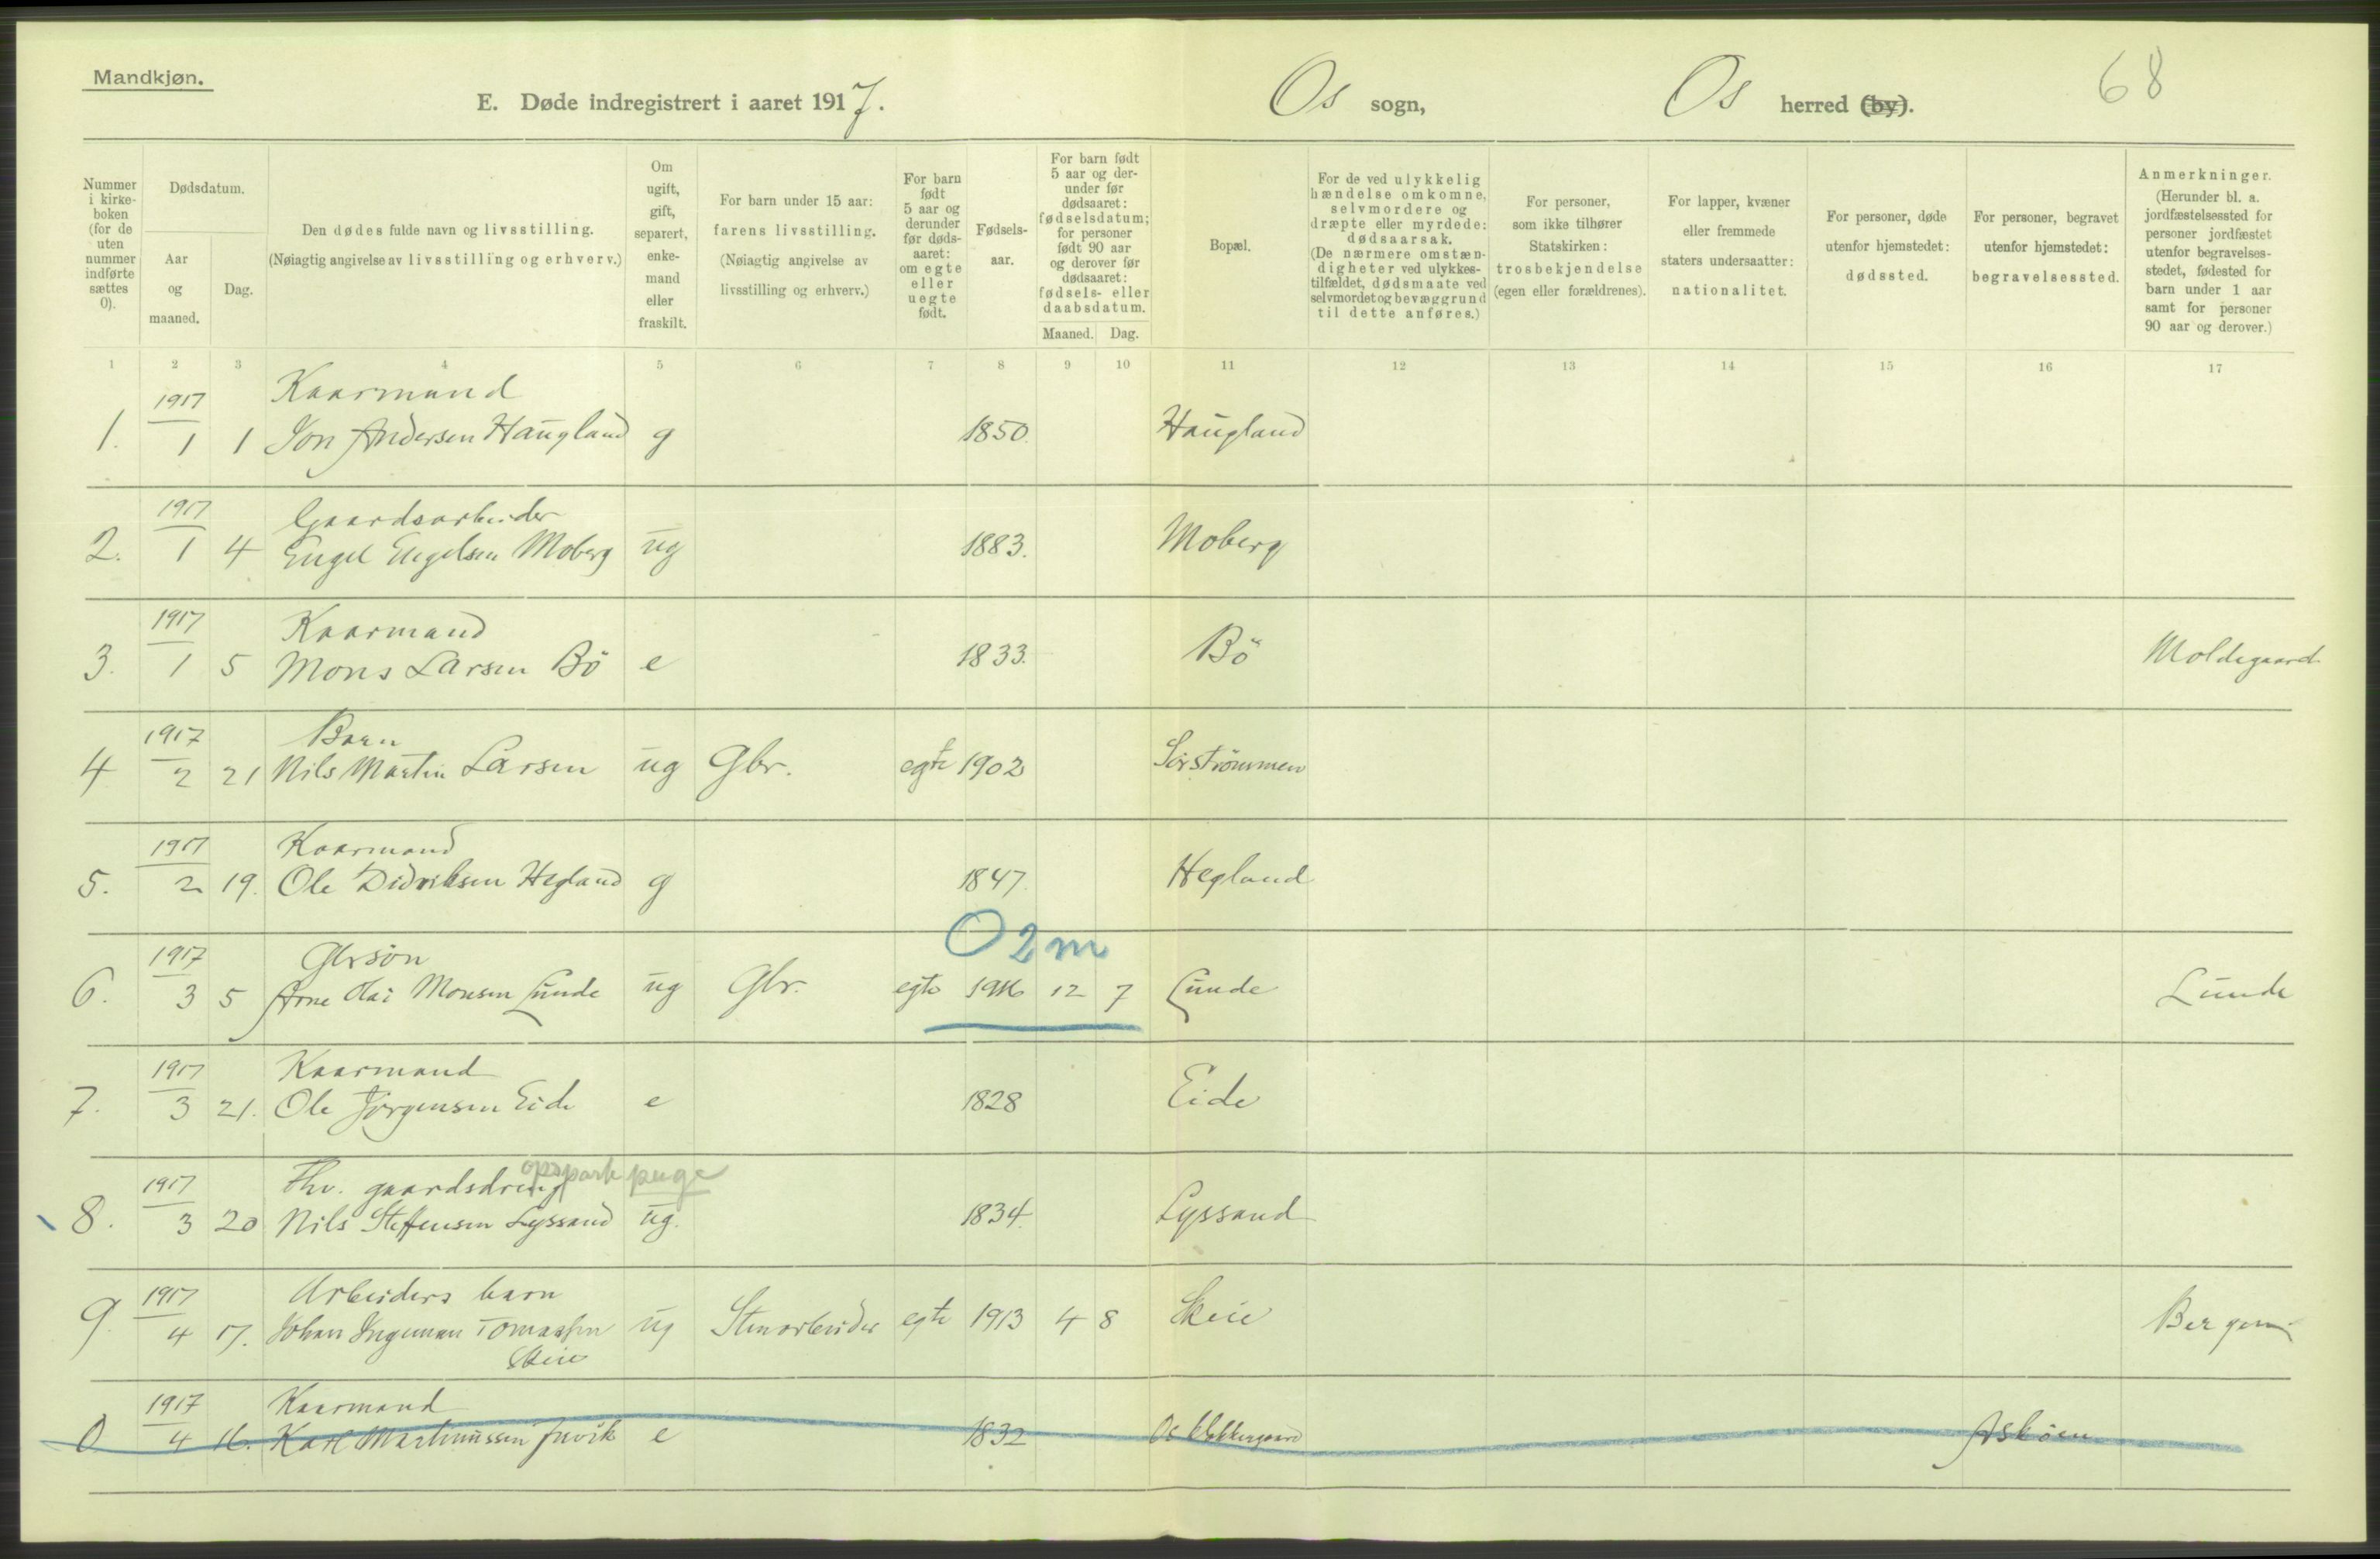 Mandkjøn.
E. Døde indregistrert i aaret 1917.
Os sogn,
Os herred (by).
68
Nummer i kirke-boken (for de uten nummer indførte sættes 0).
Dødsdatum.
Aar og maaned.
Dag.
Den dødes fulde navn og livsstilling.
(Nøiagtig angivelse av livsstilling og erhverv.)
Om ugift, gift, separert, enke-mand eller fraskilt.
For barn under 15 aar:
farens livsstilling.
(Nøiagtig angivelse av livsstilling og erhverv.)
For barn født 5 aar og derunder før døds-aaret: om egte eller uegte født.
Fødsels-aar.
For barn født 5 aar og der-under før dødsaaret: fødselsdatum; for personer født 90 aar og derover før dødsaaret: fødsels- eller daabsdatum.
Maaned. Dag.
Bopæl.
For de ved ulykkelig hændelse omkomne, selvmordere og dræpte eller myrdede: dødsaarsak.
(De nærmere omstæn-digheter ved ulykkes-tilfældet, dødsmaate ved selvmordet og bevæggrund til dette anføres.)
For personer, som ikke tilhører Statskirken: trosbekjendelse (egen eller forældrenes).
For lapper, kvæner eller fremmede staters undersaatter: nationalitet.
For personer, døde utenfor hjemstedet: dødssted.
For personer, begravet utenfor hjemstedet: begravelsessted.
Anmerkninger.
(Herunder bl. a. jordfæstelsessted for personer jordfæstet utenfor begravelses-stedet, fødested for barn under 1 aar samt for personer 90 aar og derover.)
1 2 3 4 5 6 7 8 9 10 11 12 13 14 15 16 17
1917 Kaarmand
1. 1 1 Jon Andersen Haugland g 1850. Haugland
1917 Gaardsarbeider
2. 1 4 Engel Engelsen Moberg ug 1883. Moberg
1917 Kaarmand
3. 1 5 Mons Larsen Bö e 1833. Bö Moldegaard
1917 Barn
4 2 21 Nils Martin Larsen ug Gbr. egte 1902 Sörströnmen
1917 Kaarmand
5. 2 19. Ole Didriksen Hegland g 1847. Hegland
O 2 m
1917 Gbrsön
6. 3 5 Arne Olai Monsen Lunde ug Gbr. egte 1916 12 7 Lunde Lunde
1917 Kaarmand
7. 3 21. Ole Jörgensen Eide e 1828 Eide
1917 Fhv. gaardsdreng
8. 3 20 Nils Steffensen Lyssand ug. 1834. Lyssand
1917 Arbeiders barn
9. 4 17. Johan Ingeman Tomassen ug Stenarbeider egte 1913 4 8 Skeie Bergen
Skeie
1917 Kaarmand
0 4 16. Karl Martinussen Juvik e 1832 Os klokkergaard Asköen